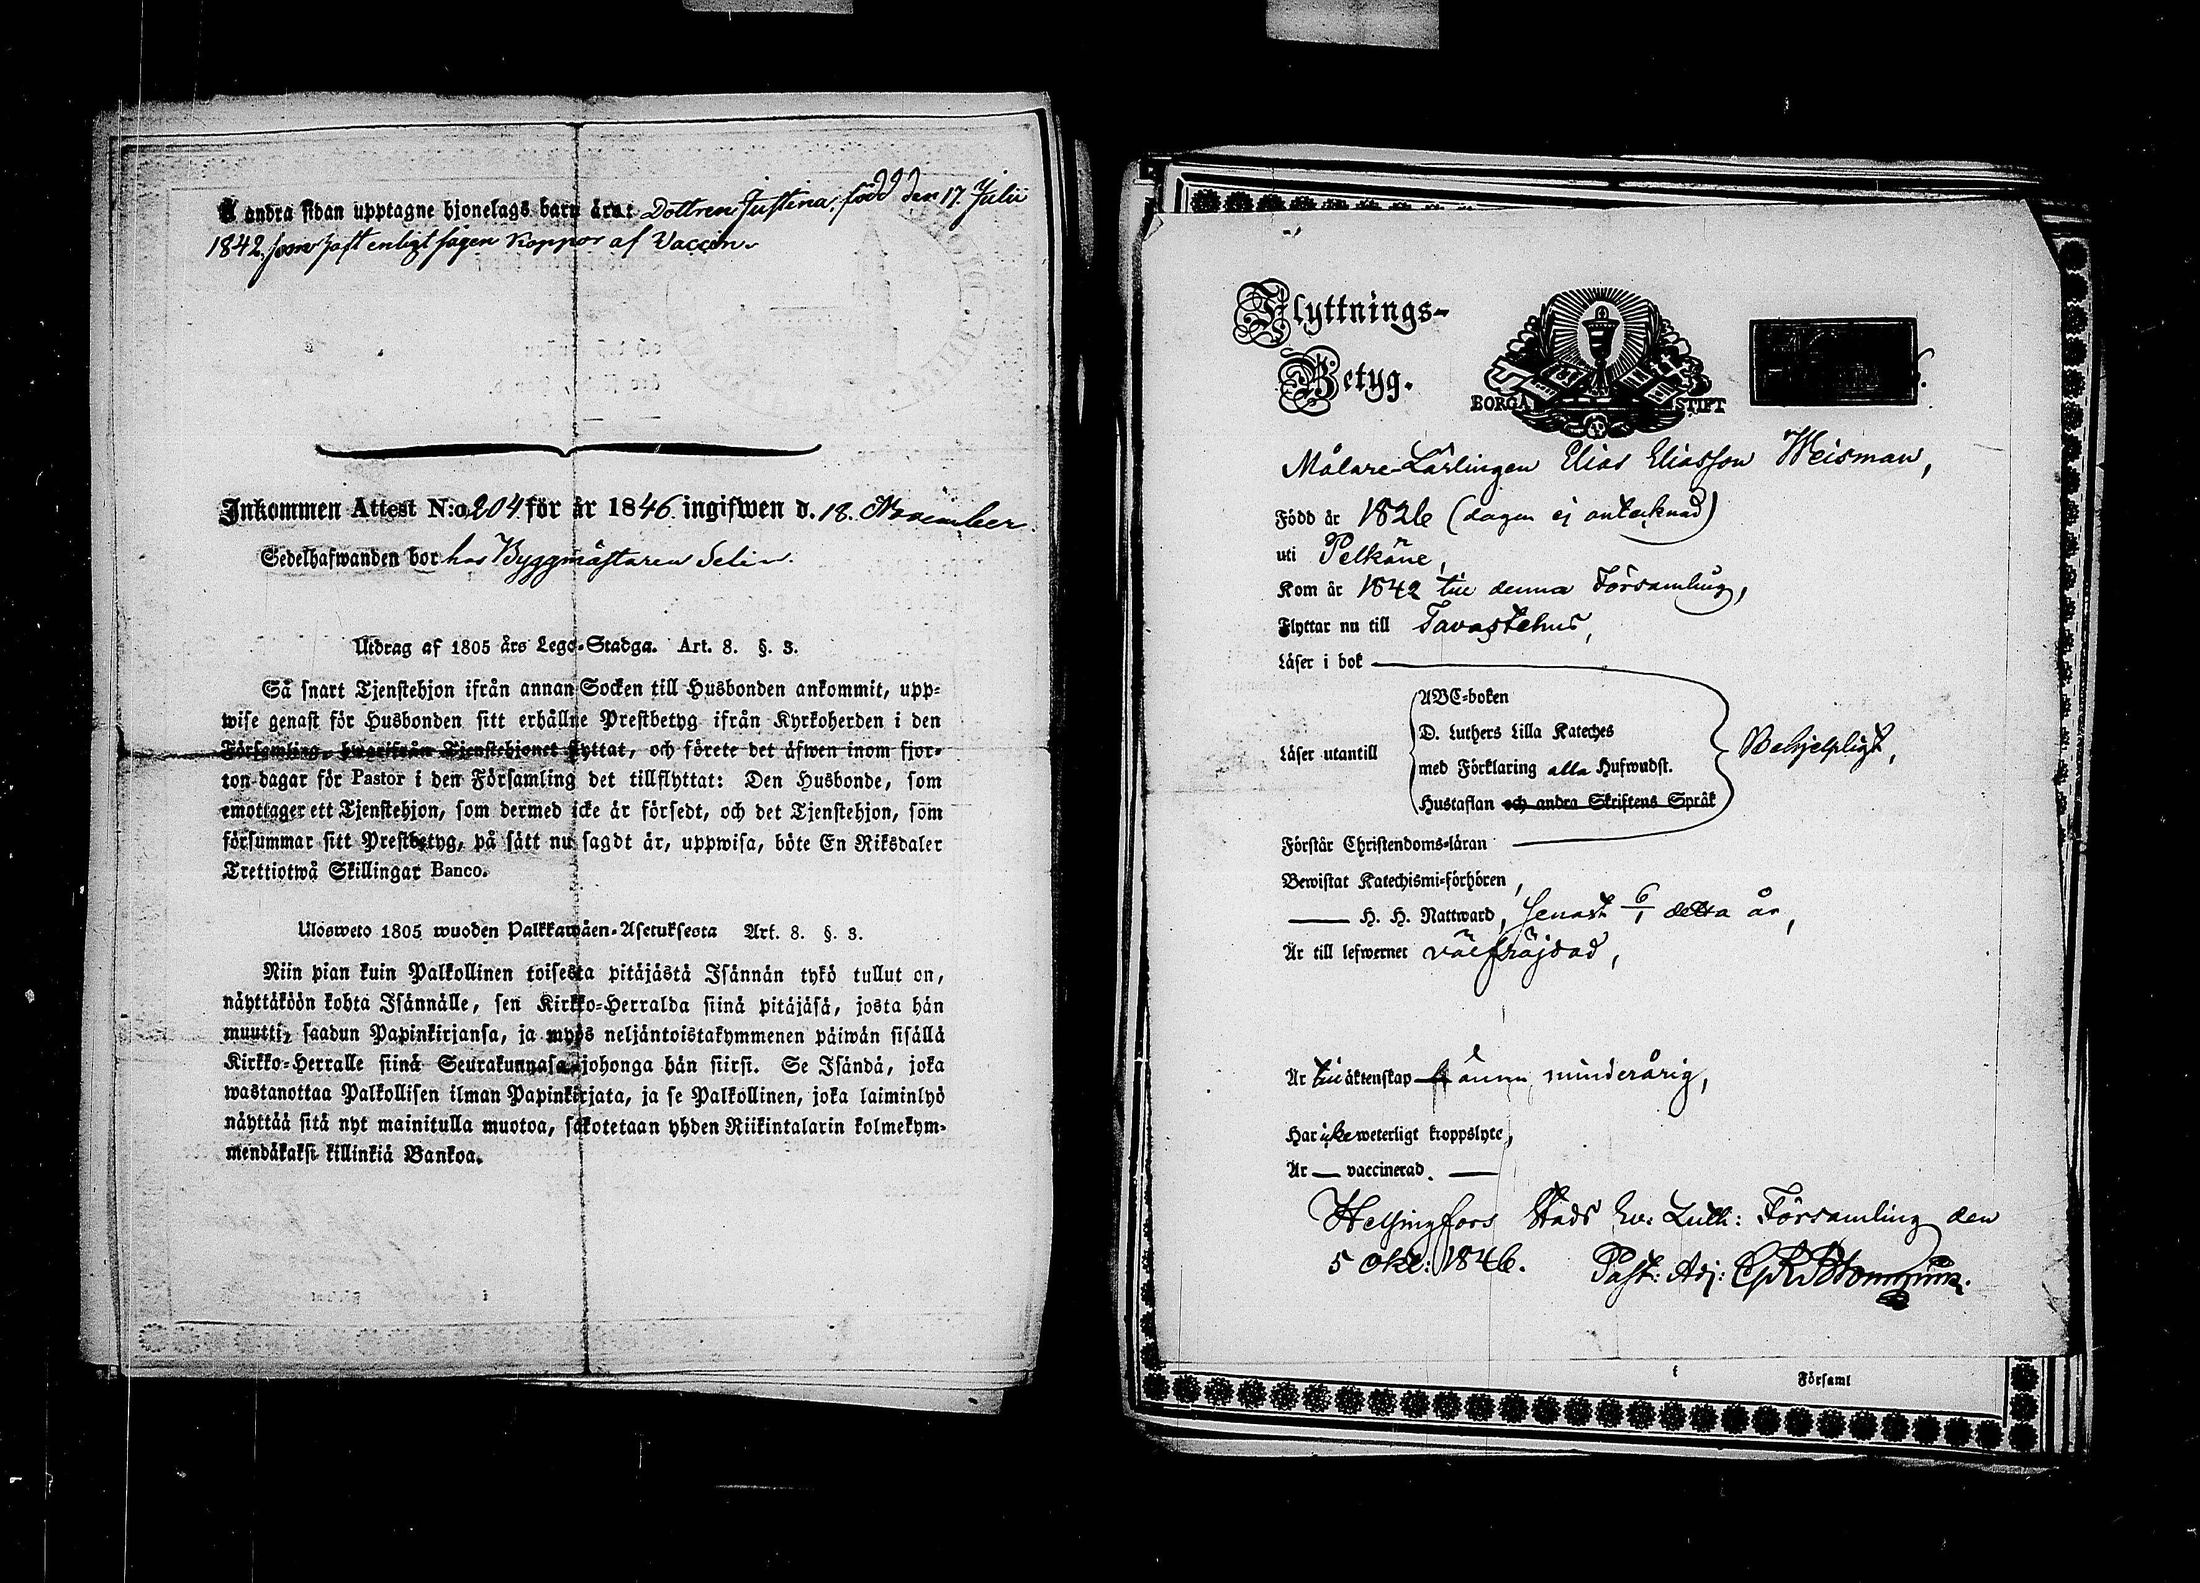 Å andra sidan upptagne hjonelags barn äro: Dottren Justina, född den 17. Julii
1842. som haft enligt sägen koppor af Vaccin.
Inkommen Attest N:o 204 för år 1846 ingifwen d. 18. November.
Sedelhafwanden bor hos Byggmästaren Selin.
Utdrag af 1805 års Lego-Stadga. Art. 8. §. 3.
Så snart Tjenstehjon ifrån annan Socken till Husbonden ankommit, upp-
wise genast för Husbonden sitt erhållne Prestbetyg ifrån Kyrkoherden i den
Församling, hwarifrån Tjenstehjonet flyttat, och förete det äfwen inom fjor-
ton dagar för Pastor i den Församling det tillflyttat: Den Husbonde, som
emottager ett Tjenstehjon, som dermed icke är försedt, och det Tjenstehjon, som
försummar sitt Prestbetyg, på sätt nu sagdt är, uppwisa, böte En Riksdaler
Trettiotwå Skillingar Banco.
Ulosweto 1805 wuoden Palkkawäen-Asetuksesta Art. 8. §. 3.
Niin pian kuin Palkollinen toisesta pitäjästä Isännän tykö tullut on,
näyttäköön kohta Isännälle, sen Kirkko-Herralda siinä pitäjäsä, josta hän
muutti, saadun Papinkirjansa, ja myös neljäntoistakymmenen päiwän sisällä
Kirkko-Herralle siinä Seurakunnasa, johonga hän siirsi. Se Isändä, joka
wastanottaa Palkollisen ilman Papinkirjata, ja se Palkollinen, joka laiminlyö
näyttää sitä nyt mainitulla muotoa, sakotetaan yhden Riikintalarin kolmekym-
mendäkaksi killinkiä Bankoa.
Flyttnings-
Betyg.
BORGÅ STIFT
Målare-Lärlingen Elias Eliasson Weisman,
Född år 1826 (dagen ej antecknad)
uti Pelkäne,
Kom år 1842 till denna Församling,
Flyttar nu till Tavastehus,
Läser i bok
ABC-boken
D. Luthers Lilla Kateches
Läser utantill
med Förklaring alla Hufwudst.
Behjelpligt,
Hustaflan och andra Skriftens Språk
Förstår Christendoms-läran
Bewistat Katechismi-förhören,
H. H. Nattward, senast 6/1 detta år,
Är till lefwernet välfräjdad,
Är till äktenskap ännu minderårig,
Har icke weterligt kroppslyte,
Är — vaccinerad.
Helsingfors Stads Ev: Luth: Församling den
5 Okt: 1846. Past: Adj:
i
Församl